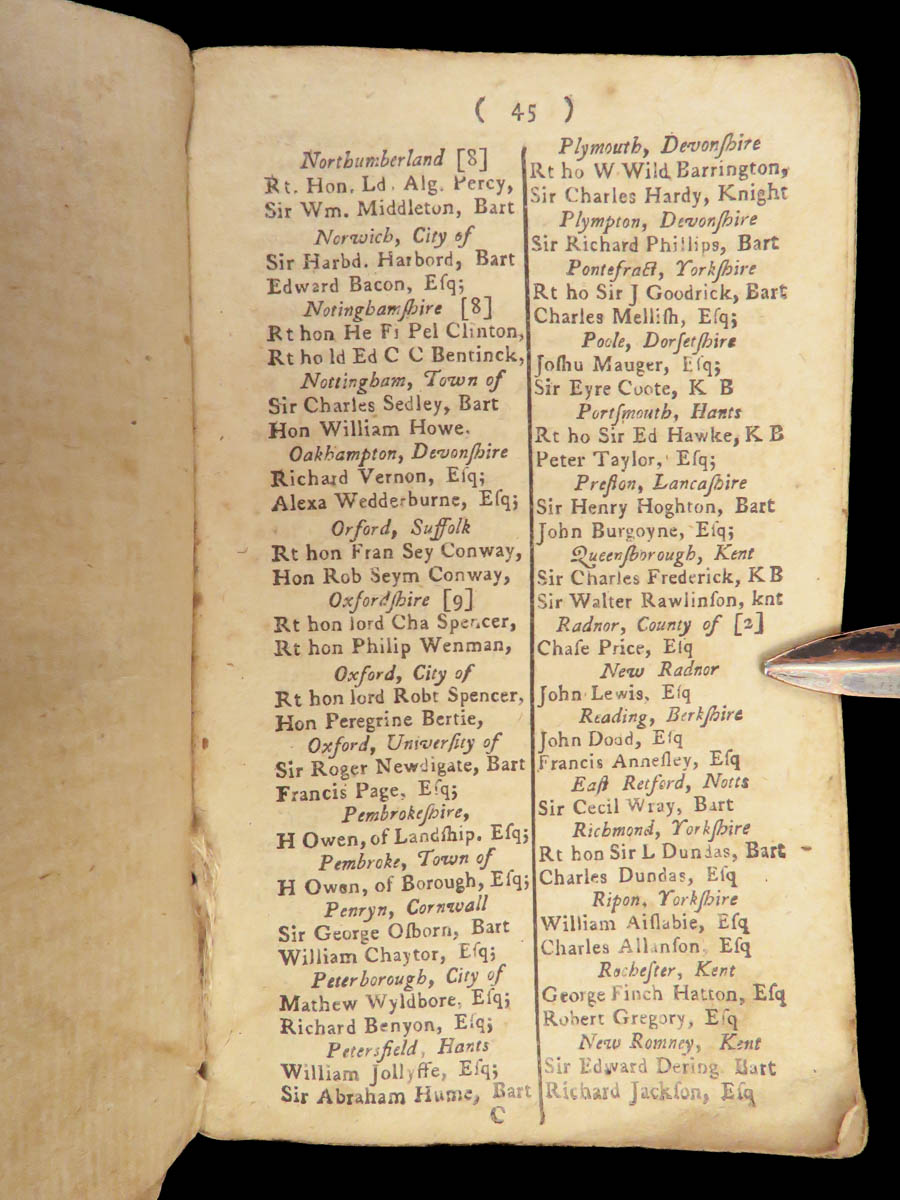 ( 45 )
Northumberland [8]
Rt. Hon. Ld. Alg. Percy,
Sir Wm. Middleton, Bart
Norwich, City of
Sir Harbd. Harbord, Bart
Edward Bacon, Eſq;
Notinghamſhire [8]
Rt hon He Fi Pel Clinton,
Rt ho ld Ed C C Bentinck,
Nottingham, Town of
Sir Charles Sedley, Bart
Hon William Howe.
Oakhampton, Devonſhire
Richard Vernon, Eſq;
Alexa Wedderburne, Eſq;
Orford, Suffolk
Rt hon Fran Sey Conway,
Hon Rob Seym Conway,
Oxfordſhire [9]
Rt hon lord Cha Spencer,
Rt hon Philip Wenman,
Oxford, City of
Rt hon lord Robt Spencer,
Hon Peregrine Bertie,
Oxford, Univerſity of
Sir Roger Newdigate, Bart
Francis Page, Eſq;
Pembrokeſhire,
H Owen, of Landſhip. Eſq;
Pembroke, Town of
H Owen, of Borough, Eſq;
Penryn, Cornwall
Sir George Oſborn, Bart
William Chaytor, Eſq;
Peterborough, City of
Mathew Wyldbore, Eſq;
Richard Benyon, Eſq;
Petersfield, Hants
William Jollyffe, Eſq;
Sir Abraham Hume, Bart
C
Plymouth, Devonſhire
Rt ho W Wild Barrington,
Sir Charles Hardy, Knight
Plympton, Devonſhire
Sir Richard Phillips, Bart
Pontefract, Yorkſhire
Rt ho Sir J Goodrick, Bart
Charles Melliſh, Eſq;
Poole, Dorſetſhire
Joſhu Mauger, Eſq;
Sir Eyre Coote, K B
Portſmouth, Hants
Rt ho Sir Ed Hawke, K B
Peter Taylor, Eſq;
Preſton, Lancaſhire
Sir Henry Hoghton, Bart
John Burgoyne, Eſq;
Queenſborough, Kent
Sir Charles Frederick, K B
Sir Walter Rawlinſon, knt
Radnor, County of [2]
Chaſe Price, Eſq
New Radnor
John Lewis, Eſq
Reading, Berkſhire
John Dodd, Eſq
Francis Anneſley, Eſq
Eaſt Retford, Notts
Sir Cecil Wray, Bart
Richmond, Yorkſhire
Rt hon Sir L Dundas, Bart
Charles Dundas, Eſq
Ripon, Yorkſhire
William Aiſlabie, Eſq
Charles Allanſon Eſq
Rocheſter, Kent
George Finch Hatton, Eſq
Robert Gregory, Eſq
New Romney, Kent
Sir Edward Dering Bart
Richard Jackſon, Eſq